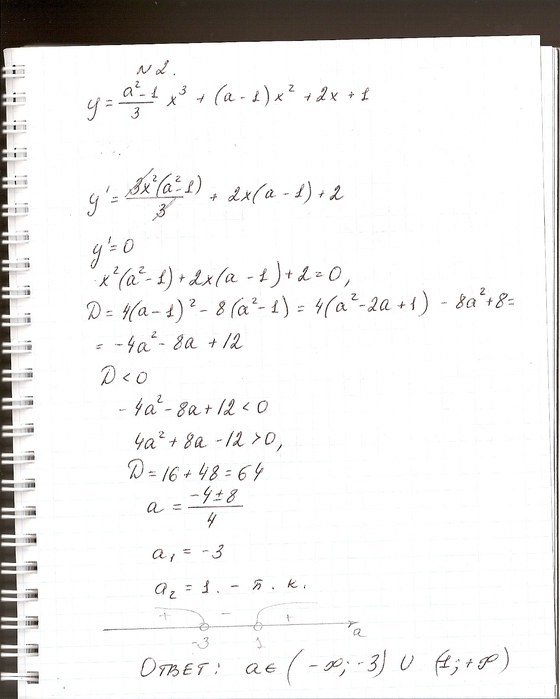 N2.
y = (a²-1)/3 x³ + (a-1)x² + 2x + 1
y' = 3x²(a²-1)/3 + 2x(a-1) + 2
y' = 0
x²(a²-1) + 2x(a-1) + 2 = 0,
D = 4(a-1)² - 8(a²-1) = 4(a²-2a+1) - 8a²+8 =
= -4a² - 8a + 12
D < 0
-4a² - 8a + 12 < 0
4a² + 8a - 12 > 0,
D = 16 + 48 = 64
a = (-4±8)/4
a₁ = -3
a₂ = 1. - п. к.
+ - +
-3 1 a
ОТВЕТ: a ∈ (-∞; -3) ∪ (1; +∞)